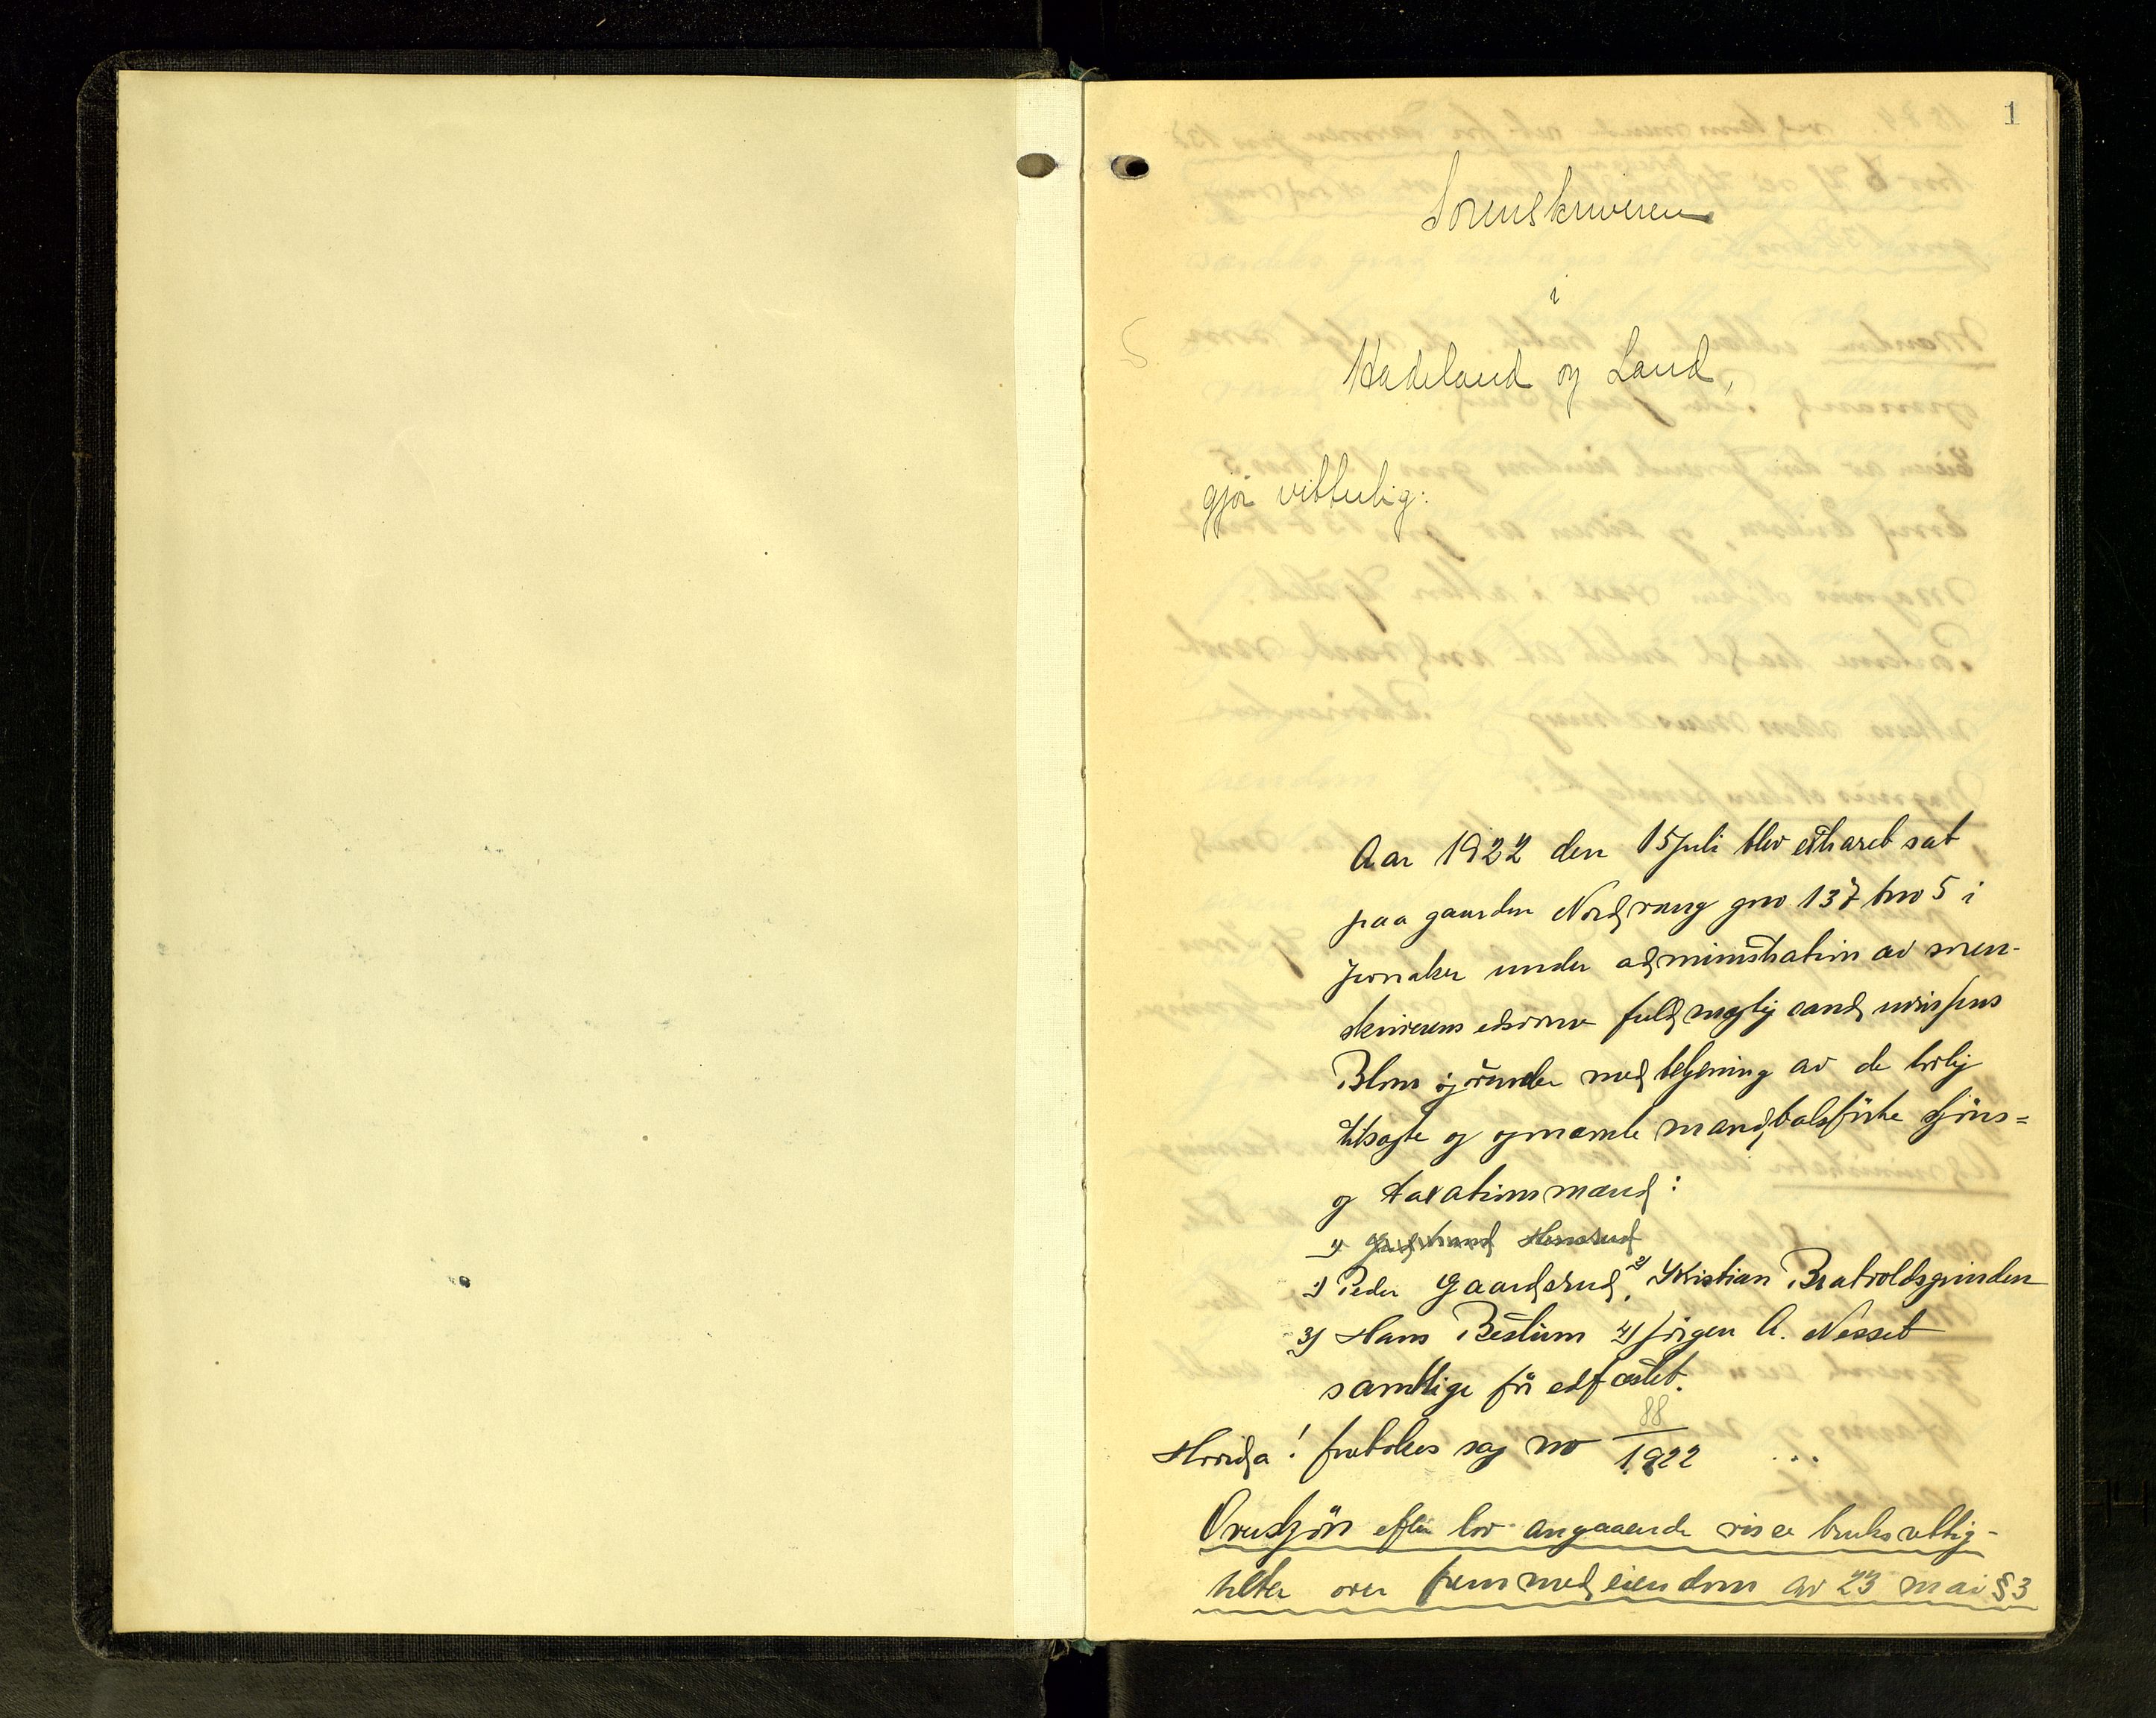 1
Sorenskriveren
i
Hadeland og Land,
gjør vitterlig:
Aar 1922 den 15 juli blev ret
paa gaarden Nordrang gno 137 bno 5 i
Jevnaker under administration av soren-
skriverens edsvorne fuldmægtig cand juris Jens
Blom og under med betjening av de lovlig
tilsagte og opnævnte mandtalsførte skjøns=
og taxationsmænd:
1) Gudbrand
1) Peder Gaardsrud, 2) Kristian Bratvoldsgrinden
3) Hans Bestum 4) Jørgen A. Nesset
samtlige før edfæstet.
Hvorda! foretokes sag no 88
1922 ...
Overskjøn efter lov angaaende visse bruksrettig-
heter over fremmed eiendom av 23 mai § 3